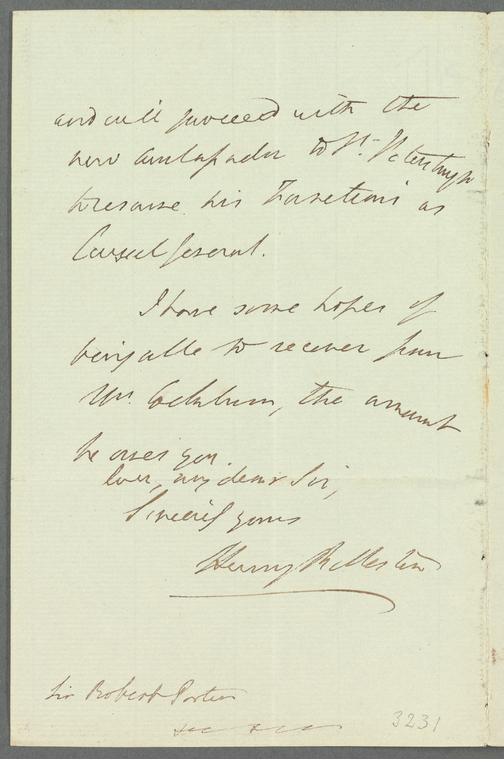 and will proceed with the
new Ambassador to St. Petersburgh
to resume his Functions as
Consul General.
I have some hopes of
being able to recover from
Mr. Cockburn, the amount
he owes you.
Ever, my dear Sir,
Sincerely yours
Henry Rolleston
Sir Robert Porter
3231